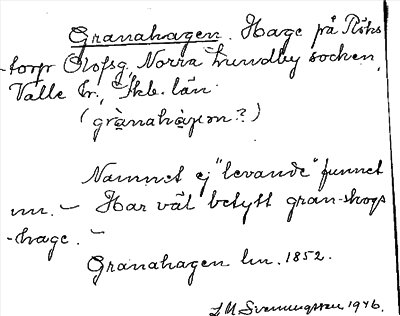 Granahagen. Hage på Röks
-torp Olofsg. Norra Lundby socken,
Valle hr., Skb. län.
(grànahàγɯn?)
Namnet ej "levande" funnet
nu. – Har väl betytt gran-skogs
-hage. –
Granahagen lm. 1852.
L M Svenungsson 1946.